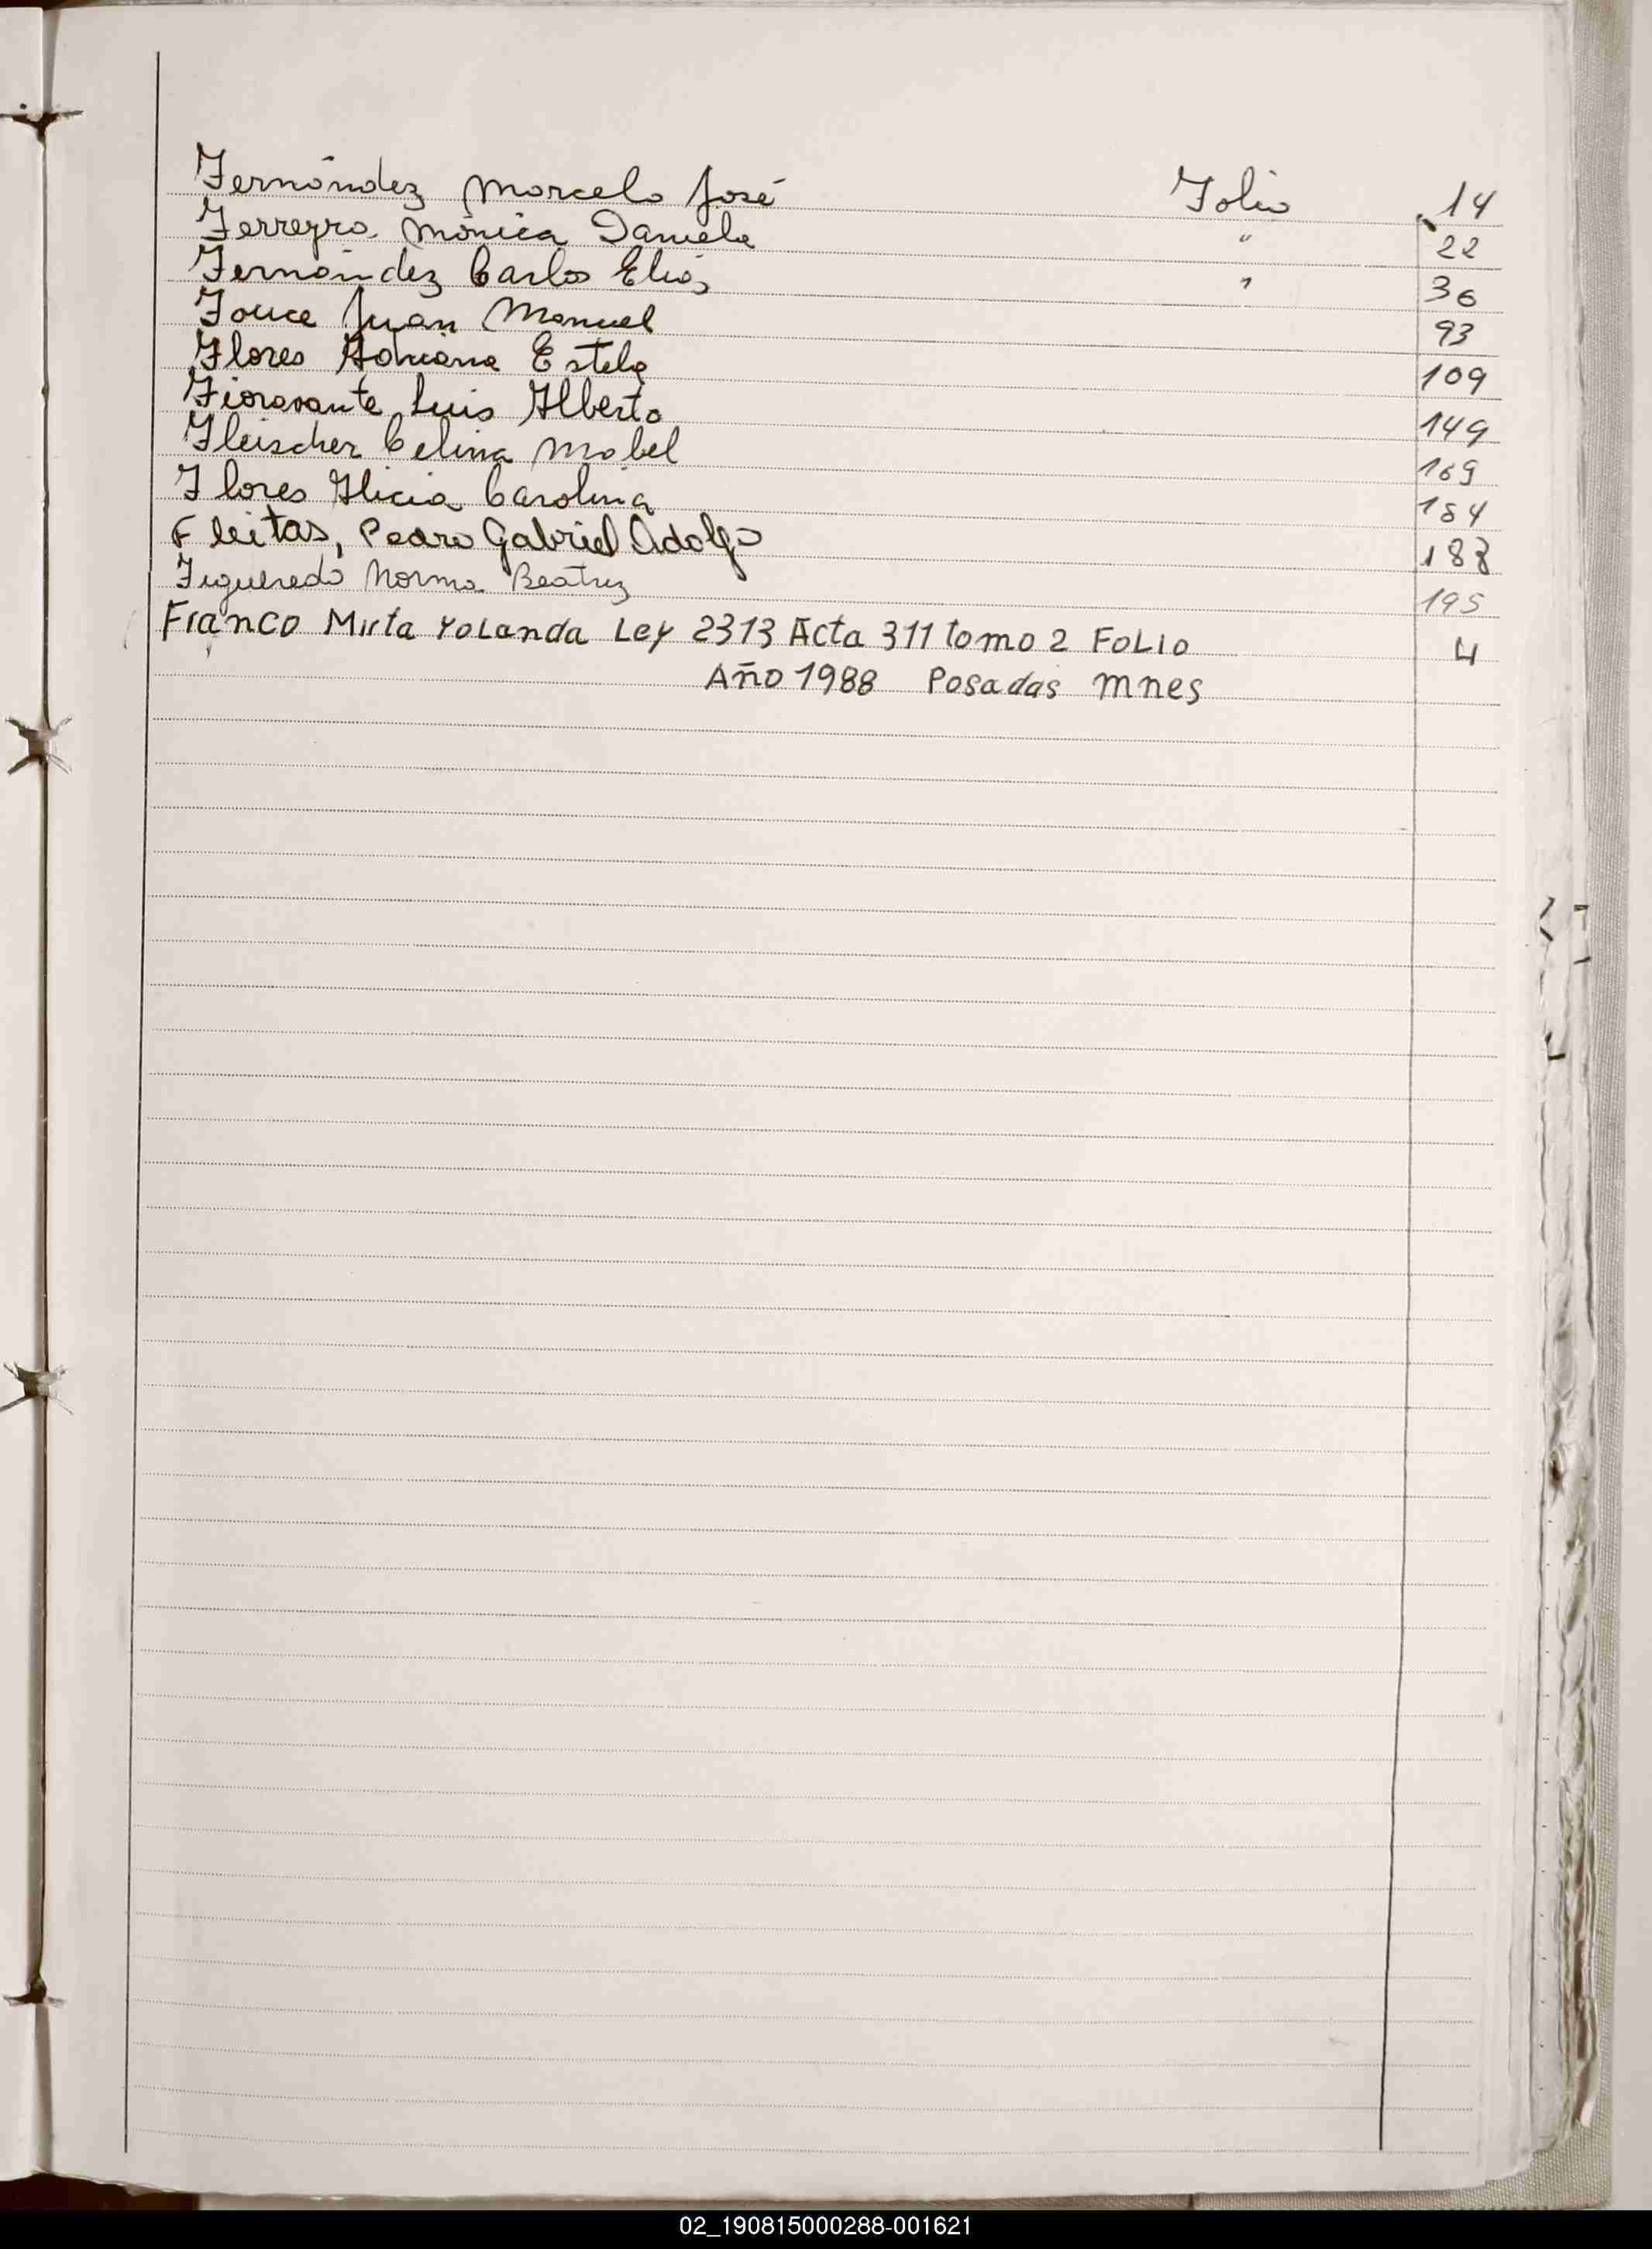 Fernández Marcelo José Folio 14
Ferreyra Mónica Daniela " 22
Fernández Carlos Elías " 36
Juan Manuel 93
Flores Adriana Estela 109
Fioravante Luis Alberto 149
Fleischer Celina Mabel 169
Flores Alicia Carolina 184
Fleitas, Pedro Gabriel Adolfo 188
Figueredo Norma Beatriz 195
Franco Mirta Yolanda Ley 2313 Acta 311 tomo 2 Folio 4
Año 1988 Posadas Mnes
02_190815000288-001621